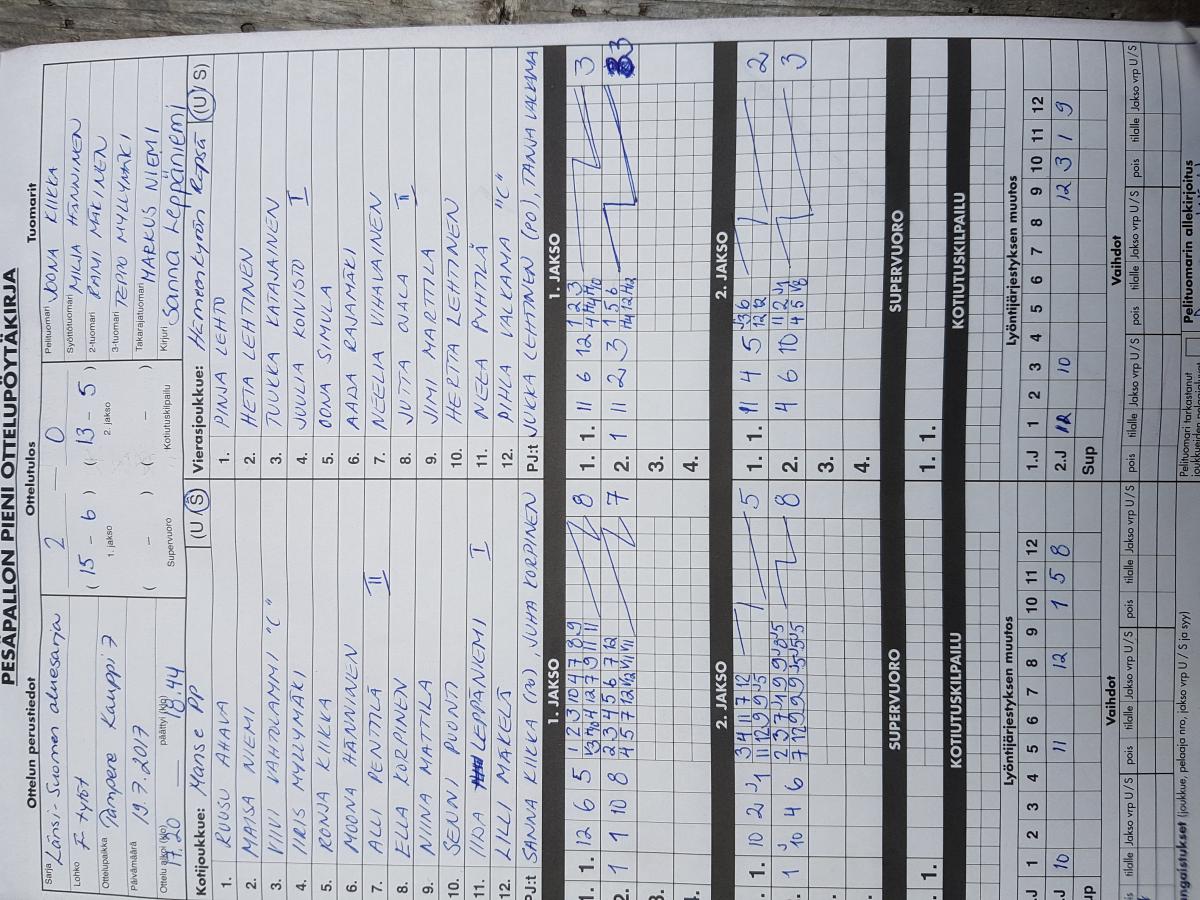 PESÄPALLON PIENI OTTELUPÖYTÄKIRJA
Ottelun perustiedot
Sarja Länsi-Suomen aluesarja
Lohko F tytöt
Ottelupaikka Tampere Kauppi 7
Päivämäärä 19.7.2017
Ottelu alkoi (klo) 17.20 päättyi (klo) 18.44
Ottelutulos
2 — 0
( 15 - 6 ) ( 13 - 5 )
1. jakso 2. jakso
( - ) ( - )
Supervuoro Kotiutuskilpailu
Tuomarit
Pelituomari JOONA KIIKKA
Syöttötuomari MILJA HÄNNINEN
2-tuomari PAMI MÄKINEN
3-tuomari TEPPO MYLLYMÄKI
Takarajatuomari MARKUS NIEMI
Kirjuri Sanna Leppäniemi
Kotijoukkue: Manse PP (U / S)
1. RUUSU AHAVA
2. MAISA NIEMI
3. VIIVI VAHOLAMMI "C"
4. IIRIS MYLLYMÄKI
5. RONJA KIIKKA
6. MOONA HÄNNINEN
7. ALLI PENTTILÄ II
8. ELLA KORPINEN
9. NIINA MATTILA
10. SENNI PUONTI
11. IIDA LEPPÄNIEMI I
12. LILLI MÄKELÄ
PJ:t SANNA KIIKKA (PO), JUHA KORPINEN
Vierasjoukkue: Hämeenkyrön Repsä (U / S)
1. PINJA LEHTO
2. HETA LEHTINEN
3. TUUKKA KATAJAINEN
4. JUULIA KOIVISTO I
5. OONA SIMULA
6. AADA RAJAMÄKI
7. NEELIA VIHAVAINEN
8. JUTTA OJALA II
9. JIMI MARTTILA
10. HERTTA LEHTINEN
11. NEEA PYHTILÄ
12. PIHLA VALKAMA "C"
PJ:t JUKKA LEHTINEN (PO), TANJA VALKAMA
1. JAKSO
1. 1. 12 6 5
1 2 3 10 4 7 8 9
8
2. 1 1 10 8
2 3 4 5 6 7 12
7
3.
4.
1. JAKSO
1. 1. 11 6 12
1 2 3
3
2. 1 11 2 3
1 5 6
3
3.
4.
2. JAKSO
1. 10 2
3 4 11 7 12
5
1 10 4 6
8
2. JAKSO
1. 1. 11 4 5
2
2. 4 6 10
3
3.
4.
SUPERVUORO
1.
SUPERVUORO
1. 1.
KOTIUTUSKILPAILU
KOTIUTUSKILPAILU
Lyöntijärjestyksen muutos
1.J 1 2 3 4 5 6 7 8 9 10 11 12
2.J 10 11 12 1 5 8
Sup
Lyöntijärjestyksen muutos
1.J 1 2 3 4 5 6 7 8 9 10 11 12
2.J 12 10 12 3 1 9
Sup
Vaihdot
pois tilalle Jakso vrp U / S pois tilalle Jakso vrp U / S pois tilalle Jakso vrp U / S
Vaihdot
pois tilalle Jakso vrp U / S pois tilalle Jakso vrp U / S pois tilalle Jakso vrp U / S
(joukkue, pelaaja nro, jakso vrp U / S ja syy)
Pelituomari tarkastanut
Pelituomarin allekirjoitus